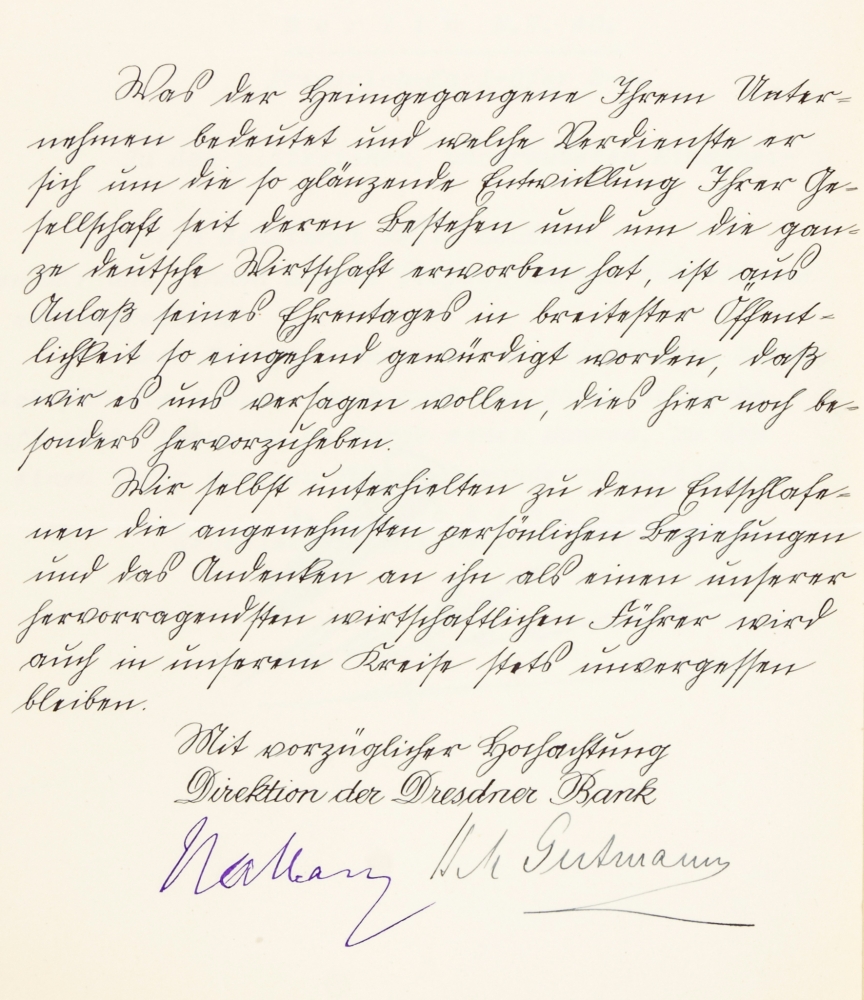 Was der Heimgegangene Ihrem Unter-
nehmen bedeutet und welche Verdienste er
sich um die so glänzende Entwicklung Ihrer Ge-
sellschaft seit deren Bestehen und um die gan-
ze deutsche Wirtschaft erworben hat, ist aus
Anlaß seines Ehrentages in breitester Öffent-
lichkeit so eingehend gewürdigt worden, daß
wir es uns versagen wollen, dies hier noch be-
sonders hervorzuheben.
Wir selbst unterhielten zu dem Entschlafe-
nen die angenehmsten persönlichen Beziehungen
und das Andenken an ihn als einen unserer
hervorragendsten wirtschaftlichen Führer wird
auch in unserem Kreise stets unvergessen
bleiben.
Mit vorzüglicher Hochachtung
Direktion der Dresdner Bank
Nathan Gutmann